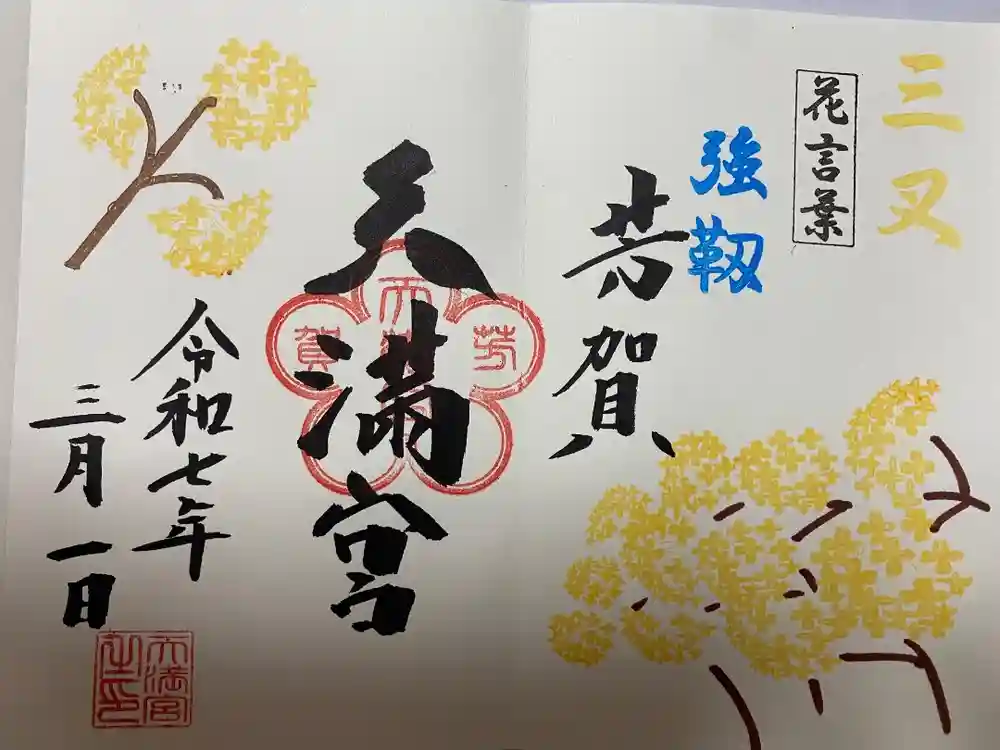 三叉
花言葉
強靭
芳賀
天満宮
芳
天満
賀
令和七年
三月一日
天満宮
之印